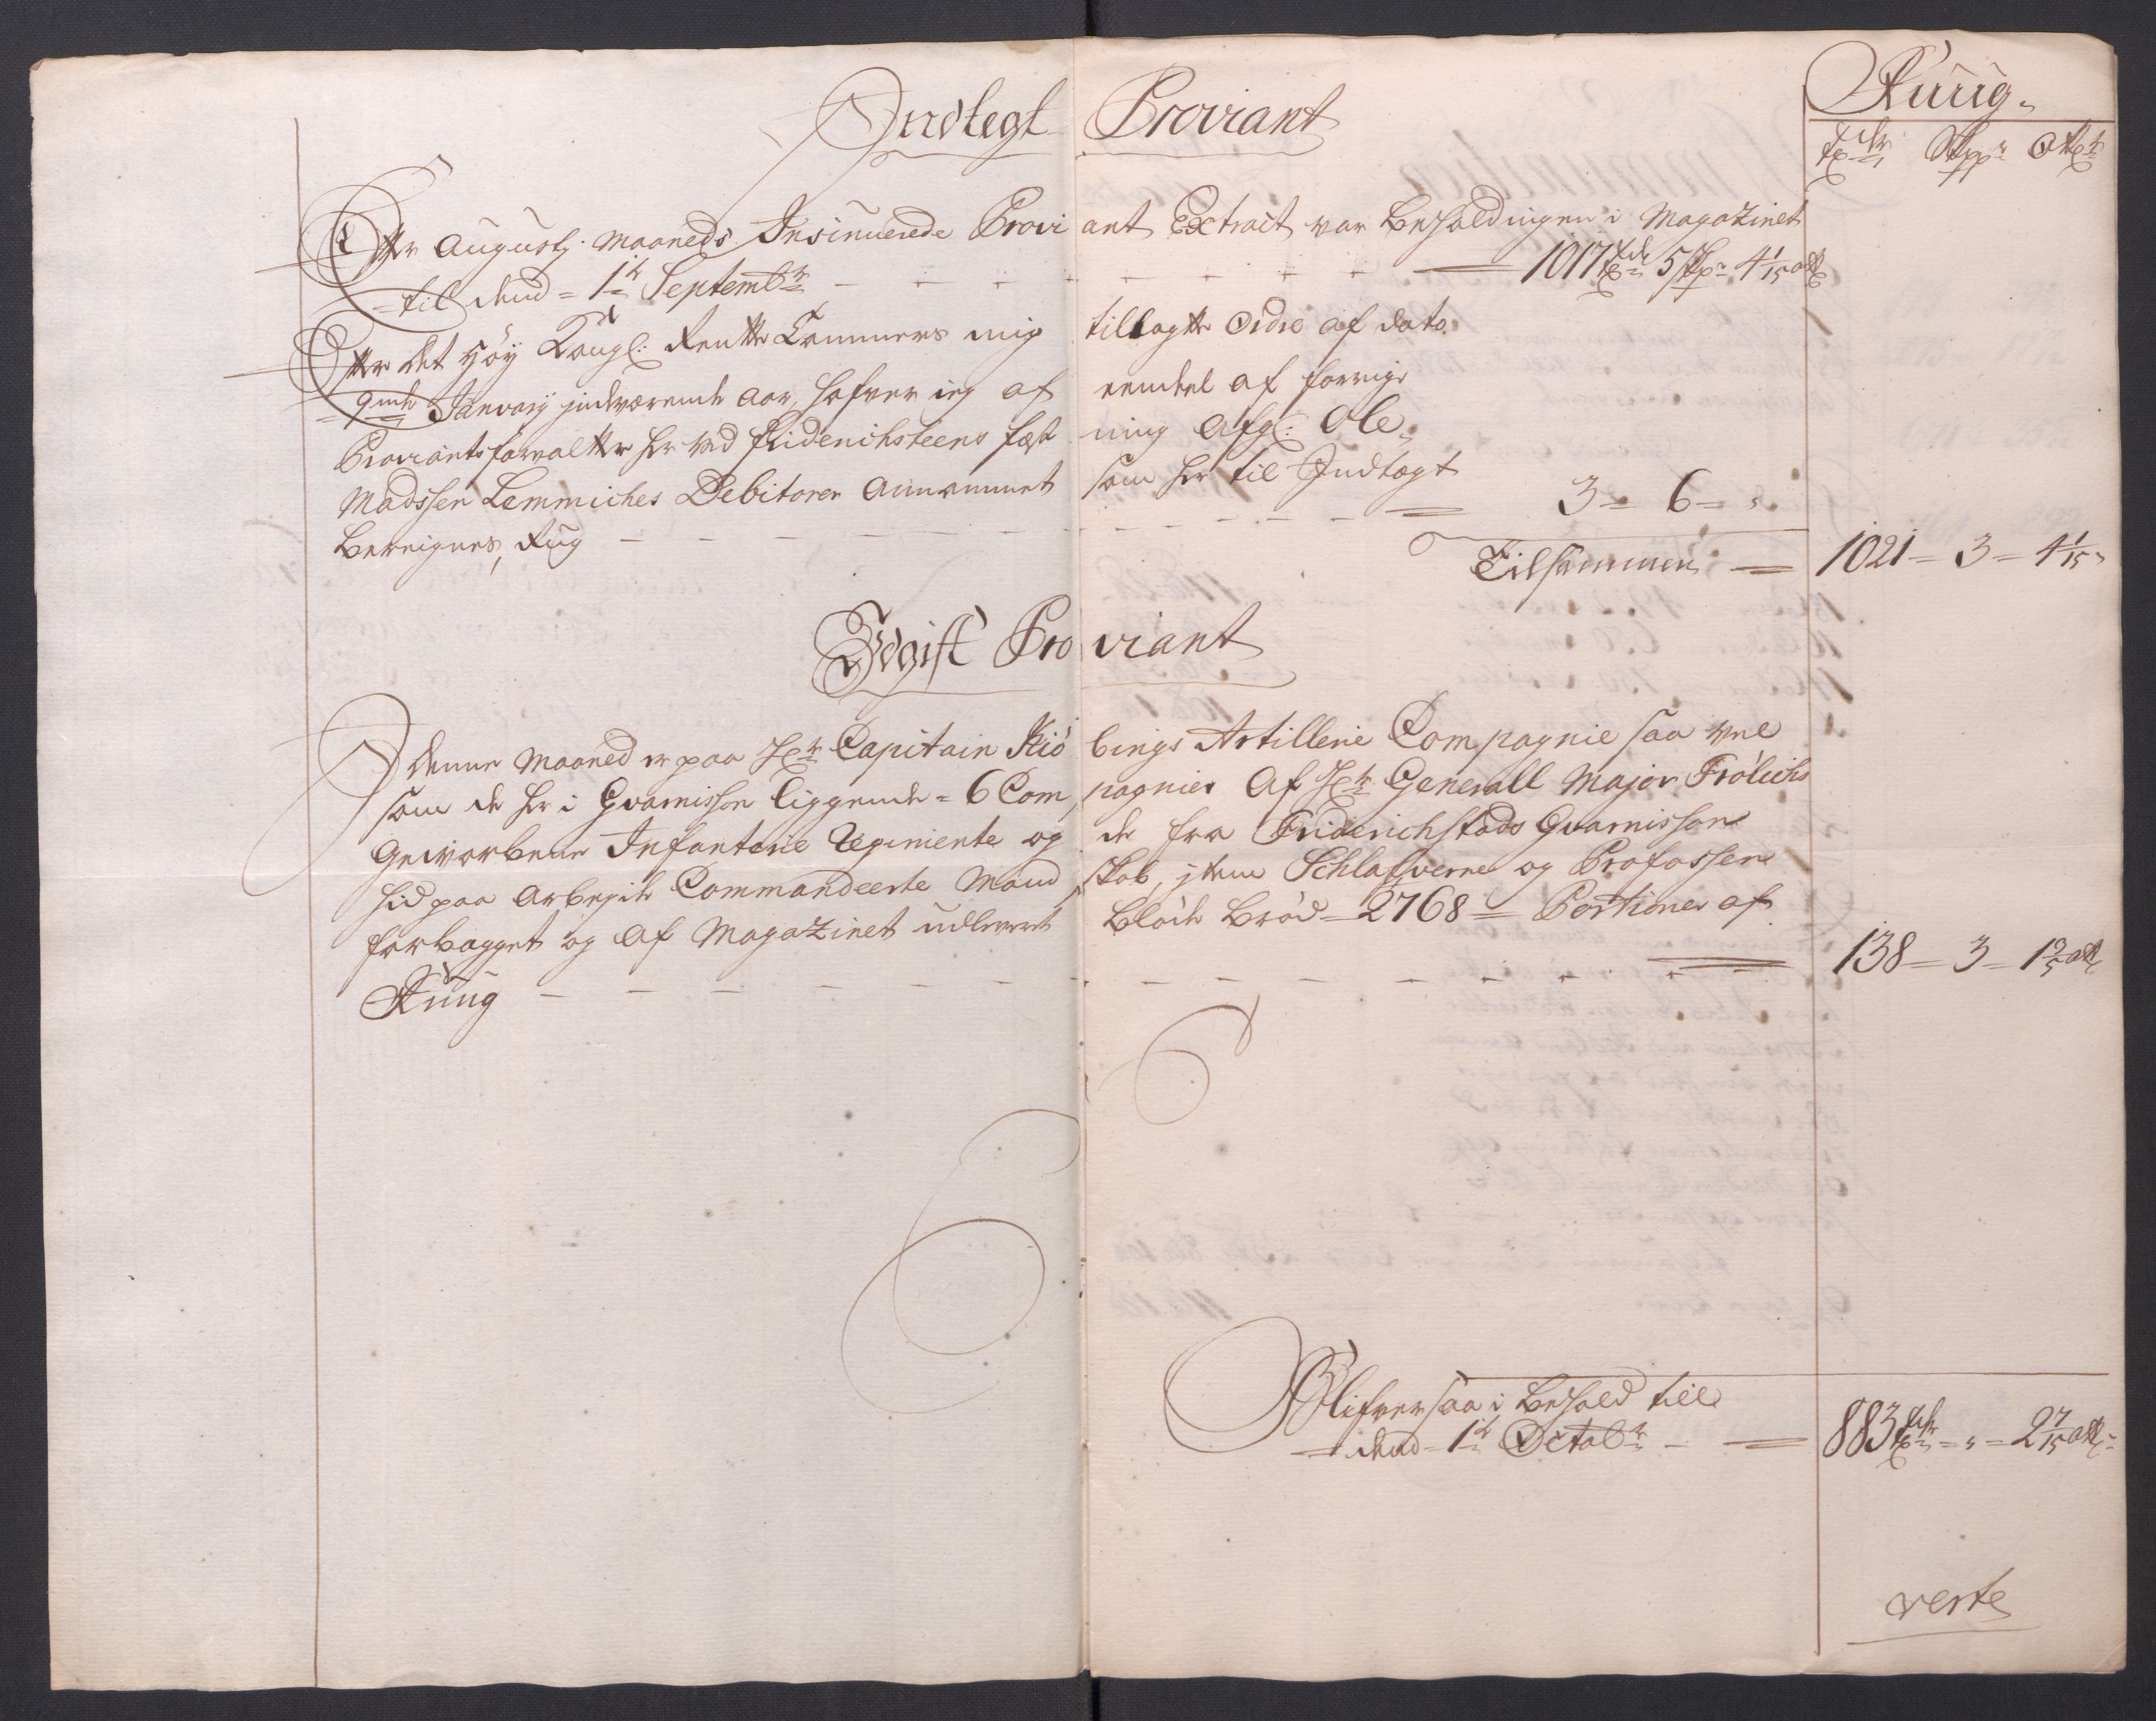 Indtegt Proviant
Ruug.
tdr Skpr Ottr
Efter Augustj Maaneds Insinuerede Proviant Extract var Beholdningen i Magazinet
til dend = 1te Septembr — 1017 tdr 5 Skpr 4 1/15 ott
Efter det Høy Kongl: Rentte Cammers mig tillagte Ordre af dato
9nde January indeværende Aar, hafver ieg af eendeel af forrige
Proviantsforvalter her ved Friderichsteens Fæstning Afg: Ole
Madssen Lemmiches Debitorer Annammet som her til Indtægt
Bereignes, Rug — 3 = 6 = „
Tilsammen — 1021 = 3 = 4 1/15
Udgift Proviant
I denne Maaned er paa Hr Capitain Kiøbings Artillerie Compagnie saa vel
som de her i Gvarnisson liggende = 6 Compagnier af Hr Generall Major Frølichs
Gevorbene Infanterie Regimente og de fra Friderichstads Gvarnisson
hid paa Arbejde Commandeerte Mandskab, jtem Schlafverne og Profossen
forbagget og af Magazinet udleveret Bløde Brød = 2768 = Portioner af
Ruug — 138 = 3 = 1 3/5 ott
Blifver saa i Behold till
dend = 1te Octobr — 883 tdr = „ = 2 7/15 ott
verte